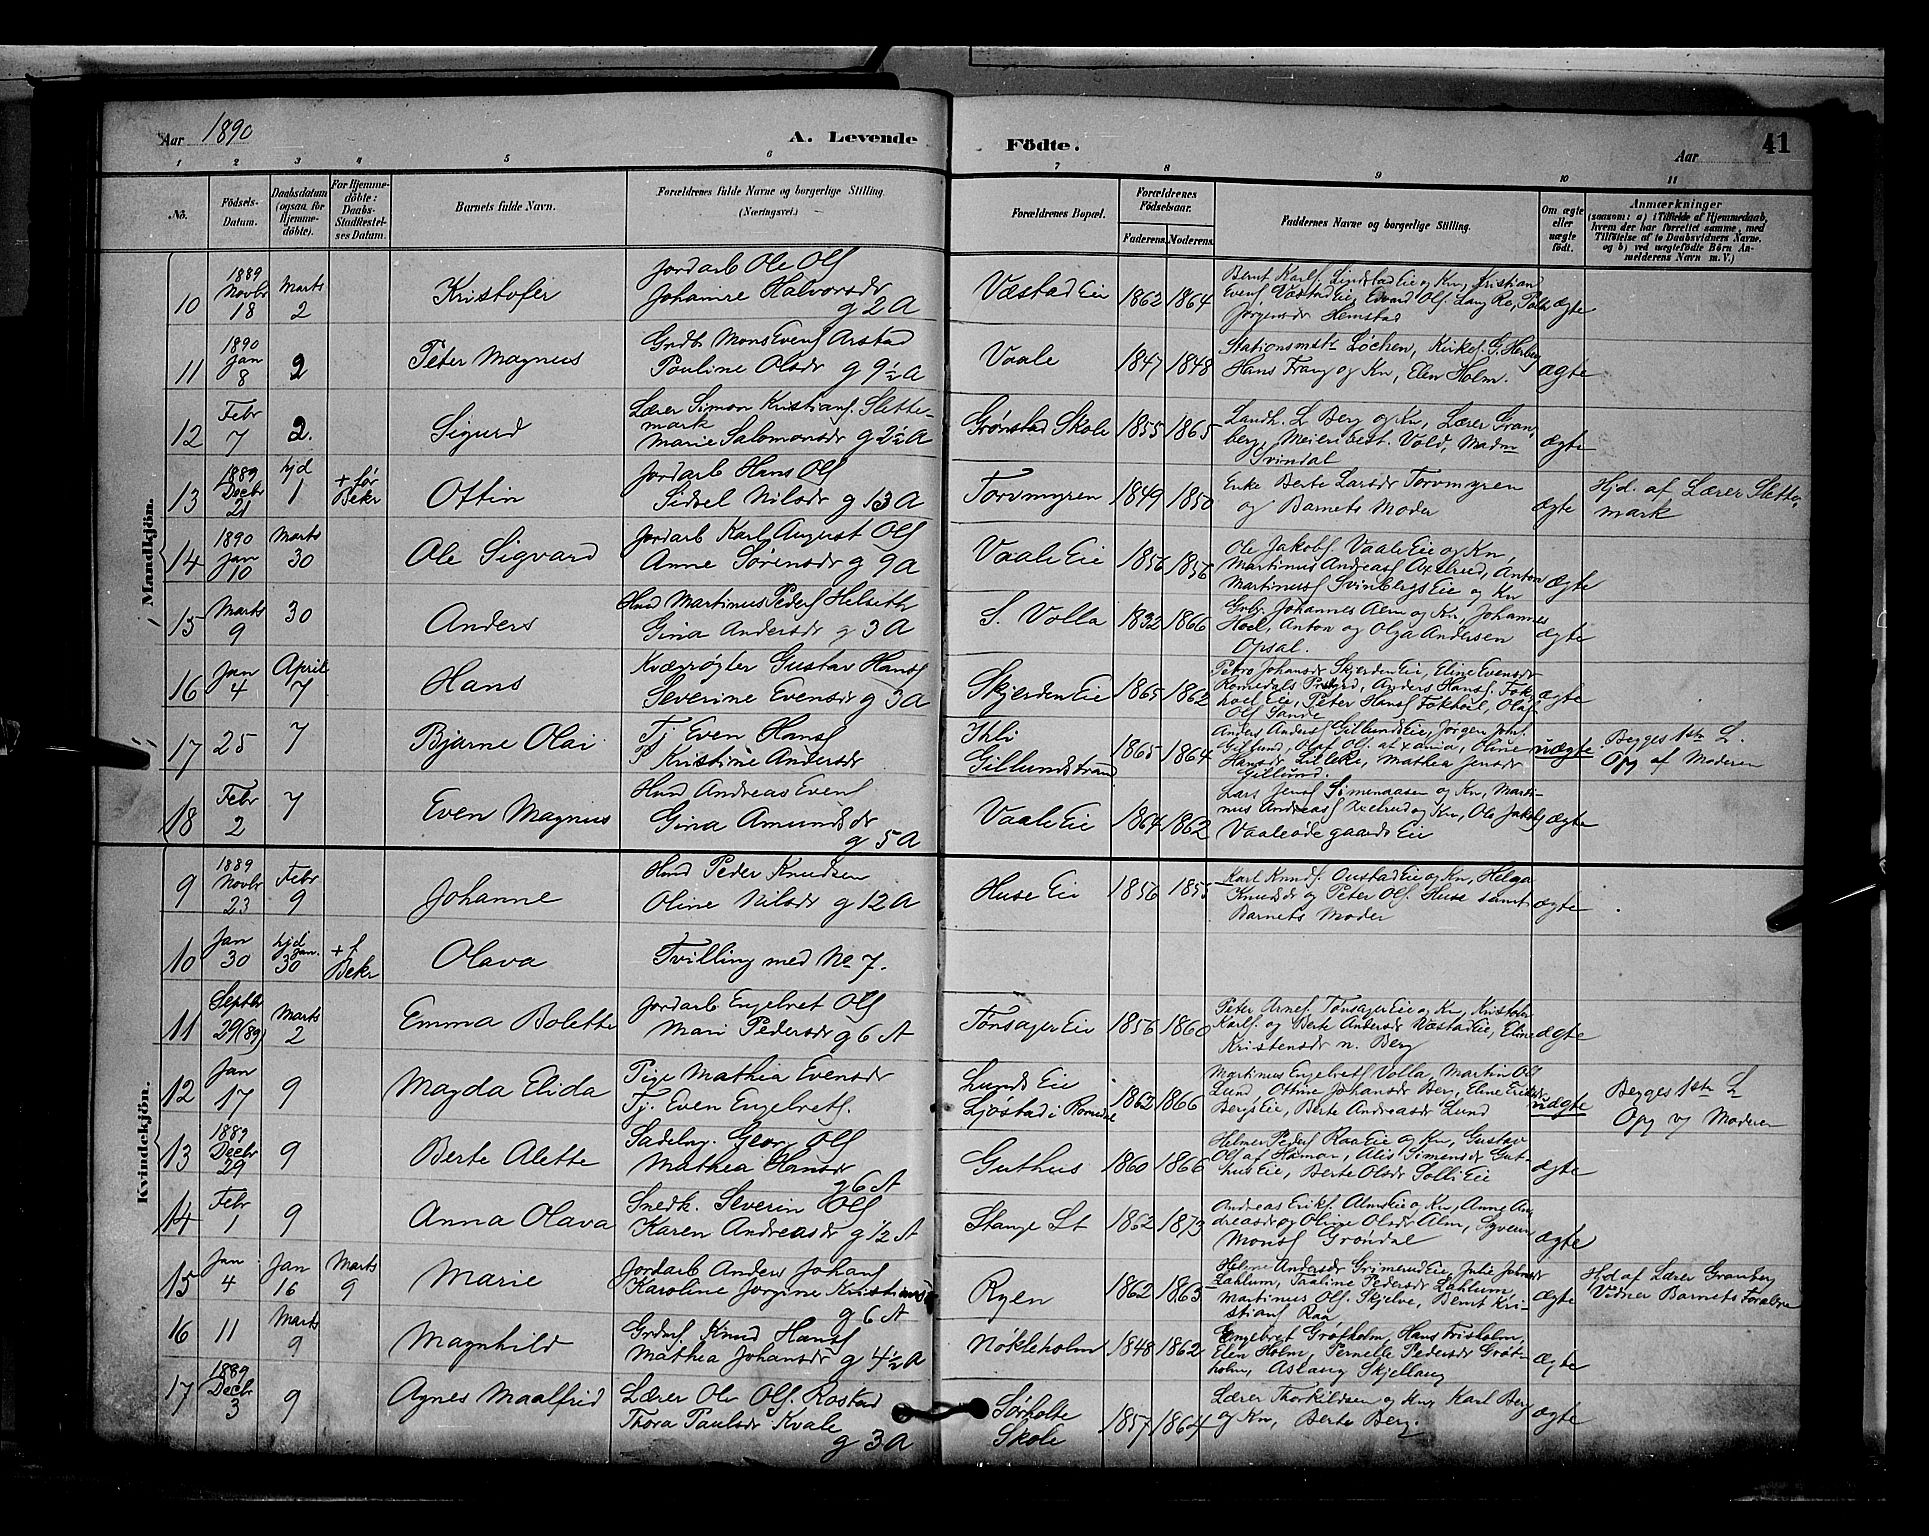 Aar 1890
A. Levende
Födte.
Aar
41
1 2 3 4 5 6 7 8 9 10 11
No.
Födsels-Datum.
Daabsdatum (ogsaa for Hjemme-döbte).
For Hjemme-döbte: Daabs-Stadfæstelses Datum.
Barnets fulde Navn.
Forældrenes fulde Navne og borgerlige Stilling. (Næringsvei.)
Forældrenes Bopæl.
Forældrenes Födselsaar.
Faderens. Moderens.
Faddernes Navne og borgerlige Stilling.
Om ægte eller uægte födt.
Anmærkninger
(saasom: a) i Tilfælde af Hjemmedaab, hvem der har forrettet samme, med Tilföielse af to Daabsvidners Navne, og b) ved uægtefödte Börn Anmelderens Navn m. V.)
Mandkjön.
10 1889 Novbr 18 Marts 2 Kristofer
Jordarb Ole Ols
Johanne Halvorsdr
g 2 A
Væstad Eie 1862 1864
Bernt Karls Lindstad Eie og Kn, Kristian
Evens Væstad Eie, Edvard Ols Lang Re,
Jørgensdr Hemstad
ægte
11 1890 Jan 8 2 Peter Magnus
Grdb Mons Evens Arstad
Pauline Olsdr g 9½ A
Vaale 1847 1848
Stationsmstr Løchen, Kirkes. G. Herberg
Hans Frang og Kn, Elen Holm.
ægte
12 Febr 7 2. Sigurd
Lærer Simon Kristians. Slette-
mark
Marie Salomonsdr g 2½ A
Grønstad Skole 1855 1865
Landh. L Berg og Kn, Lærer Gran-
berg, Meier Vold, Madm
Svindal
ægte
13 1889 Decbr 21 hjd 1 + før Bekr Ottin
Jordarb Hans Ols
Sidsel Nilsdr g 13 A
Torvmyren 1849 1850
Enke Berte Larsdr Torvmyren
og Barnets Moder
ægte
Hjd. af Lærer Slette-
mark
14 1890 Jan 10 Marts 30 Ole Sigvard
Jordarb Karl August Ols
Anne Sørensdr g 9 A
Vaale Eie 1856 1856
Ole Jakobs. Vaale Eie og Kn,
Martinus Andreas Axelrud, Anton
Martinuss Svinbergs Eie og Kn
ægte
15 Marts 9 30 Anders
Husm Martinus Peders Helseth
Gina Andersdr g 3 A
S. Volla 1832 1866
Grbr. Johannes Alm og Kn, Johannes
Hoel, Anton og Olga Andersen
Opsal.
ægte
16 Jan 4 April 7 Hans
Kvægrøgter Gustav Hans
Severine Evensdr g 3 A
Skjerden Eie 1865 1862
Petra Johansdr Skjerden Eie, Eline Evensdr
Romedals Prstgrd, Anders Hans. Fok-
hoel Eie, Peter Hans Fokhoel, Olaf
Ols Sande
ægte
17 25 7 Bjarne Olai
Tj Even Hans
P Kristine Andersdr
Ihli
Gillundstrand
1865 1864
Anders Anders Gillunds Eie, Jørgen Joh.
Gillund, Olaf Ols. af xania, Oline
Hansdr Lilleke, Mathea Jensdr
Gillund.
uægte
Begges 1ste L.
Opg af Moderen
18 Febr 2 7 Even Magnus
Husm Andreas Evens
Gina Amundsdr
g 5 A
Vaale Eie 1864 1862
Lars Jens Simenaasen og Kn, Marti-
nus Andreas Axelrud og Kn, Ole Jakobs
Vaaleødegaards Eie
ægte
Kvindekjön.
9 1889 Novbr 23 Febr 9 Johanne
Husm Peder Knudsen
Oline Nilsdr g 12 A
Huse Eie 1856 1855
Karl Knuds. Oustad Eie og Kn, Helga
Knudsdr og Peter Ols. Huse samt
Barnets Moder
ægte
10 Jan 30 hjd Jan. 30 + f Bekr Olava
Tvilling med No 7.
11 Septbr 29 (89) Marts 2 Emma Bolette
Jordarb Engebret Ols
Mari Pedersdr g 6 A
Tønsager Eie 1856 1860
Peter Arnes. Tønsager Eie og Kn, Kristofer
Karls. og Berte Andersdr Væstad Eie, Eline
Kristensdr n. Berg
ægte
12 Jan 17 9 Magda Elida
Pige Mathea Evensdr
Tj. Even Engebrets.
Lunds Eie
Ljøstad i Romedal
1862 1866
Martinus Engebrets Volla, Martin Ols
Lund Ottine Johansdr Berg, Eline Eriksdr
Bergs Eie, Berte Andreasdr Lund
uægte
Begges 1ste L
Opg v Moderen
13 1889 Decbr 29 9 Berte Alette
Sadelmg. Georg Ols
Mathea Hansdr
g 6 A
Guthus 1860 1866
Helmer Peders Raa Eie og Kn, Gustav
Ols af Hamar, Alis Simensdr Gut-
hus Eie, Berte Olsdr Solli Eie
ægte
14 Febr 1 9 Anna Olava
Snedk. Severin Ols
Karen Andreasdr g ½ A
Stange St 1862 1873
Andreas Eriks. Alms Eie og Kn, Anne An-
dreasdr og Oline Olsdr Alm, Syver
Mons Grøndal
ægte
15 Jan 4 Jan 16 Marts 9 Marie
Jordarb Anders Johans
Karoline Jørgine Kristiansdr
g 6 A
Ryen 1862 1863
Helene Andersdr Grimerud Eie, Julie Johnsdr
Lahlum, Taaline Pedersdr Lahlum,
Martinus Ols. Skjelve, Bernt Kri-
stians Raa
ægte
Hjd af Lærer Granberg
Vidner Barnets Forældre
16 11 Marts 9 Magnhild
Grdm. Knud Hans
Mathea Johansdr g 4½ A
Nøkleholm 1848 1862
Engebret Grøtholm, Hans Frisholm,
Elen Holm, Pernelle Pedersdr Grøt-
holm, Aslaug Skjellang
ægte
17 1889 Decbr 3 9 Agnes Maalfrid
Lærer Ole Ols. Rostad
Thora Paulsdr Kvale
g 3 A
Sørholte
Skole
1857 1864
Lærer Thorkildsen og Kn, Karl Berg
og Kn, Berte Berg.
ægte